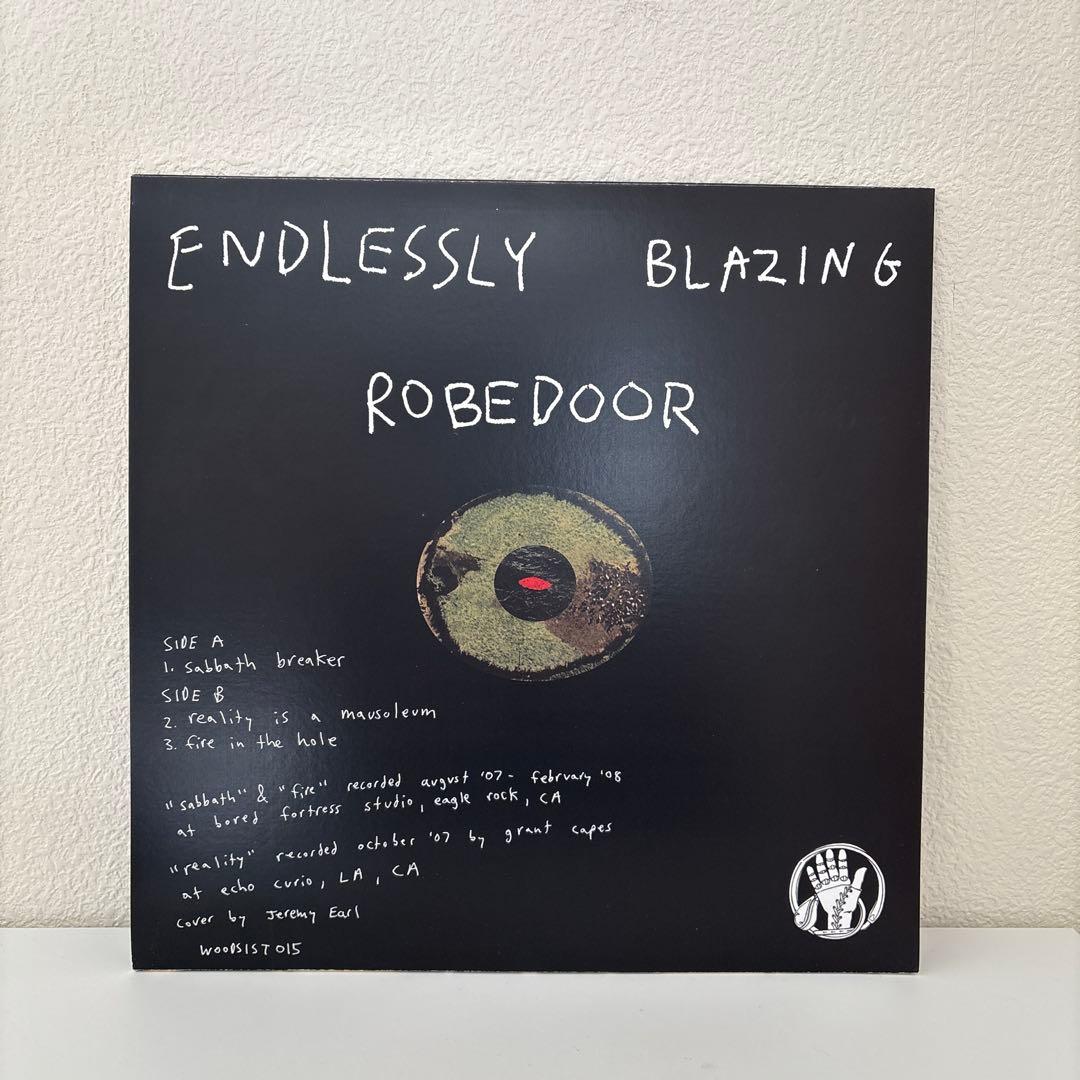 ENDLESSLY BLAZING
ROBEDOOR
SIDE A
1. sabbath breaker
SIDE B
2. reality is a mausoleum
3. fire in the hole
"sabbath" & "fire" recorded august '07 - february '08
at bored fortress studio, eagle rock, CA
"reality" recorded october '07 by grant capes
at echo curio, LA, CA
cover by Jeremy Earl
WOODSIST 015